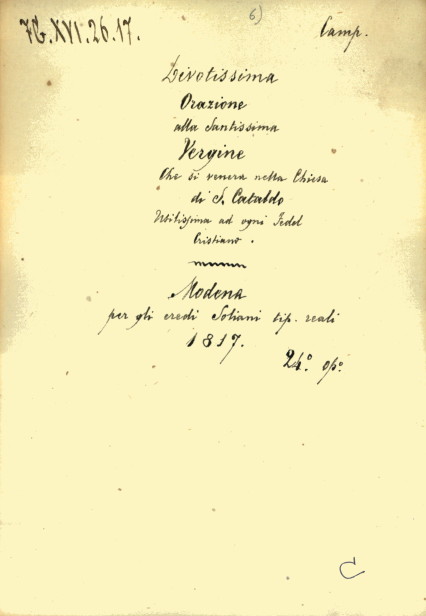 7G.XVI.26.17.
6)
Camp.
Divotissima
Orazione
alla Santissima
Vergine
Che si venera nella Chiesa
di S. Cataldo
Utilissima ad ogni Fedel
Cristiano.
Modena
per gli eredi Soliani tip. reali
1817.
24.° op°
C